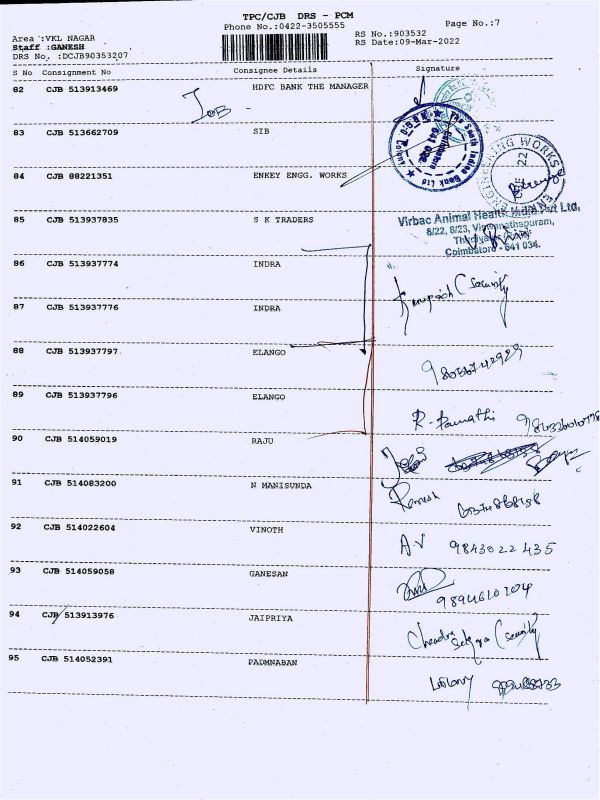 TPC/CJB DRS - PCM
Phone No.:0422-3505555
Page No.:7
Area :VKL NAGAR
Staff :GANESH
DRS No. :DCJB90353207
RS No.:903532
RS Date:09-Mar-2022
S No Consignment No Consignee Details Signature
82 CJB 513913469 HDFC BANK THE MANAGER
83 CJB 513662709 SIB
The South Indian Bank Ltd
84 CJB 88221351 ENKEY ENGG. WORKS
85 CJB 513937835 S K TRADERS
Virbac Animal Health India Pvt Ltd.
8/22, 8/23, Viswanathapuram,
Coimbatore - 641 034.
86 CJB 513937774 INDRA
Security
87 CJB 513937776 INDRA
88 CJB 513937797 ELANGO
89 CJB 513937796 ELANGO
90 CJB 514059019 RAJU
91 CJB 514083200 N MANISUNDA
Ramesh
92 CJB 514022604 VINOTH
A.V 9843022435
93 CJB 514059058 GANESAN
9894610204
94 CJB 513913976 JAIPRIYA
Security
95 CJB 514052391 PADMNABAN